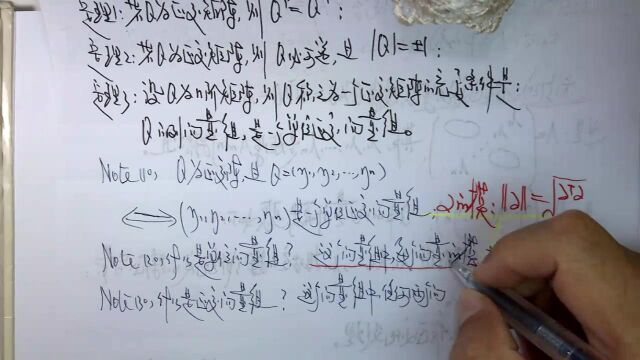 定理1:若Q为正交矩阵,则Q^T=Q^-1;
定理2:若Q为正交矩阵,则Q必可逆,且|Q|=±1;
定理3:设Q为n阶矩阵,则Q称之为一个正交矩阵的充要条件是:
Q的列向量组是一个规范正交向量组。
Note(1): Q为正交矩阵,且Q=(η1,η2,…,ηn)
⟺(η1,η2,…,ηn)是规范正交向量组 α的模:||α||=√(α^Tα)
Note(2): 什么是规范向量组? 这个向量组中,每个向量的模
Note(3): 什么是正交向量组? 这个向量组中,任何两个向